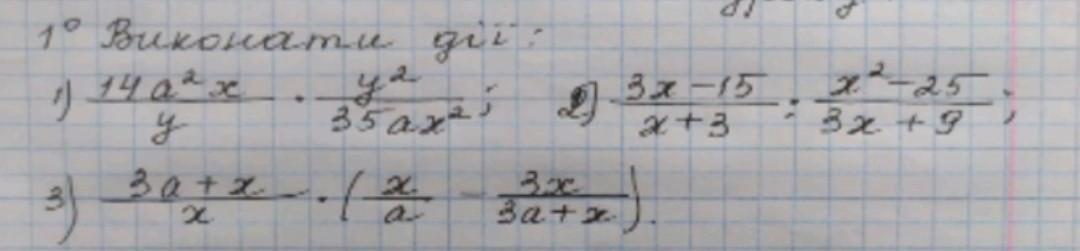 1° Виконати дії:
1) \frac{14a^2x}{y} \cdot \frac{y^2}{35ax^2}; 2) \frac{3x-15}{x+3} : \frac{x^2-25}{3x+9};
3) \frac{3a+x}{x} \cdot (\frac{x}{a} - \frac{3x}{3a+x}).